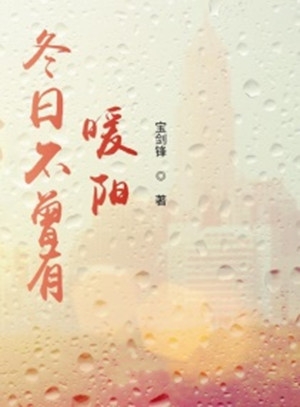 冬日不曾有
暖阳
宝剑锋 ◎ 著